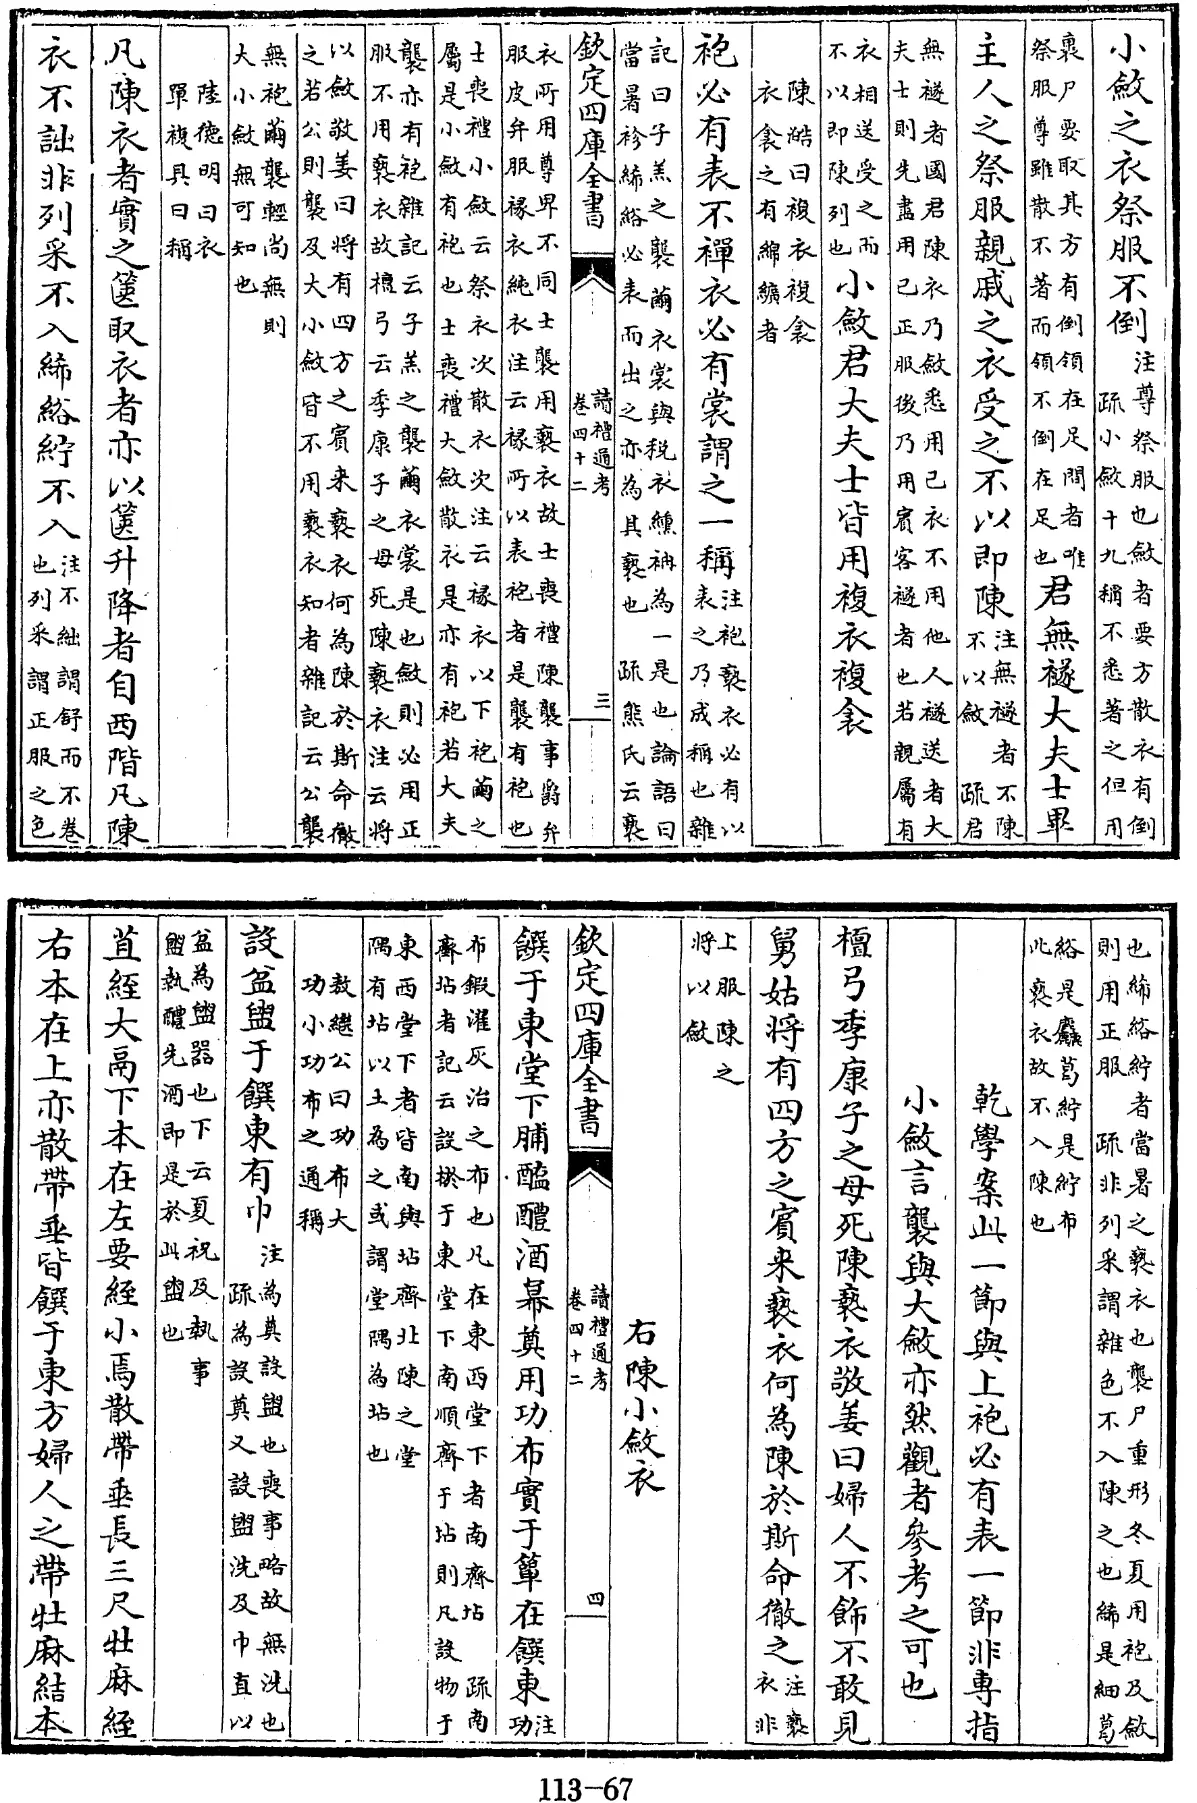 小斂之衣祭服不倒注尊祭服也斂者要方散衣有倒
疏小斂十九稱不悉著之但用
裹尸要取其方有倒領在足間者唯
祭服尊雖散不著而領不倒在足也君無襚大夫士畢
主人之祭服親戚之衣受之不以即陳注無襚者不陳
不以斂　疏君
無襚者國君陳衣乃斂悉用己衣不用他人襚送者大
夫士則先盡用己正服後乃用賔客襚者也若親屬有
衣相送受之而
不以即陳列也小斂君大夫士皆用複衣複衾
陳澔曰複衣複衾
衣衾之有綿纊者
袍必有表不襌衣必有裳謂之一稱注袍褻衣必有以
表之乃成稱也雜
記曰子羔之襲繭衣裳與稅衣纁袡為一是也論語曰
當暑袗絺綌必表而出之亦為其褻也　疏熊氏云褻
欽定四庫全書
讀禮通考
卷四十二
三
衣所用尊卑不同士襲用褻衣故士喪禮陳襲事爵弁
服皮弁服褖衣純衣注云褖所以表袍者是襲有袍也
士喪禮小斂云祭衣次散衣次注云褖衣以下袍繭之
屬是小斂有袍也士喪禮大斂散衣是亦有袍若大夫
襲亦有袍雜記云子羔之襲繭衣裳是也斂則必用正
服不用褻衣故檀弓云季康子之母死陳褻衣注云將
以斂敬姜曰將有四方之賔来褻衣何為陳於斯命徹
之若公則襲及大小斂皆不用褻衣知者雜記云公襲
無袍繭襲輕尚無則
大小斂無可知也
陸德明曰衣
單複具曰稱
凡陳衣者實之篋取衣者亦以篋升降者自西階凡陳
衣不詘非列采不入絺綌紵不入注不絀謂舒而不卷
也列采謂正服之色
也絺綌紵者當暑之褻衣也襲尸重形冬夏用袍及斂
則用正服　疏非列采謂雜色不入陳之也絺是細葛
綌是麤葛紵是紵布
此褻衣故不入陳也
乾學案此一節與上袍必有表一節非專指
小斂言襲與大斂亦然觀者參考之可也
檀弓季康子之母死陳褻衣敬姜曰婦人不飾不敢見
舅姑將有四方之賔来褻衣何為陳於斯命徹之注褻
衣非
上服陳之
將以斂
右陳小斂衣
欽定四庫全書
讀禮通考
卷四十二
四
饌于東堂下脯醢醴酒冪奠用功布實于簞在饌東注
功
布鍜濯灰治之布也凡在東西堂下者南齊坫　疏南
齊坫者記云設棜于東堂下南順齊于坫則凡設物于
東西堂下者皆南與坫齊北陳之堂
隅有坫以土為之或謂堂隅為坫也
敖繼公曰功布大
功小功布之通稱
設盆盥于饌東有巾注為奠設盥也喪事略故無洗也
疏為設奠又設盥洗及巾直以
盆為盥器也下云夏祝及執事
盥執醴先酒即是於此盥也
苴絰大鬲下本在左要絰小焉散帶垂長三尺牡麻絰
右本在上亦散帶垂皆饌于東方婦人之帶牡麻結本
113-67